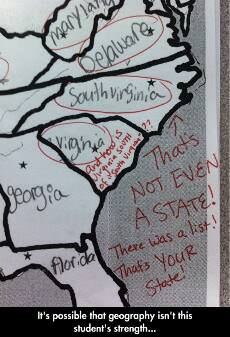 maryland
Delaware
South virginia
virginia
and how is
virginia south
of "South Virginia"??
georgia
florida
That's
NOT EVEN
A STATE!
There was a list!!
That's YOUR
State!
It's possible that geography isn't this
student's strength...